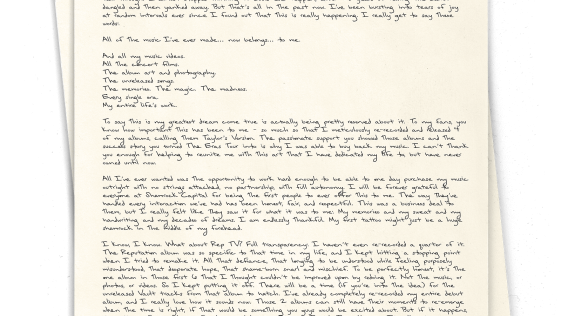 dangled and then yanked away. But that's all in the past now. I've been bursting into tears of joy
at random intervals ever since I found out that this is really happening. I really get to say these
words:
All of the music I've ever made... now belongs... to me.
And all my music videos.
All the concert films.
The album art and photography.
The unreleased songs.
The memories. The magic. The madness.
Every single era.
My entire life's work.
To say this is my greatest dream come true is actually being pretty reserved about it. To my fans, you
know how important this has been to me - so much so that I meticulously re-recorded and released 4
of my albums, calling them Taylor's Version. The passionate support you showed those albums and the
success story you turned The Eras Tour into is why I was able to buy back my music. I can't thank
you enough for helping to reunite me with this art that I have dedicated my life to but have never
owned until now.
All I've ever wanted was the opportunity to work hard enough to be able to one day purchase my music
outright with no strings attached, no partnership, with full autonomy. I will be forever grateful to
everyone at Shamrock Capital for being the first people to ever offer this to me. The way they've
handled every interaction we've had has been honest, fair, and respectful. This was a business deal to
them, but I really felt like they saw it for what it was to me: My memories and my sweat and my
handwriting and my decades of dreams. I am endlessly thankful. My first tattoo might just be a huge
shamrock in the middle of my forehead.
I know, I know. What about Rep TV? Full transparency: I haven't even re-recorded a quarter of it.
The Reputation album was so specific to that time in my life, and I kept hitting a stopping point
when I tried to remake it. All that defiance, that longing to be understood while feeling purposely
misunderstood, that desperate hope, that shame-born snarl and mischief. To be perfectly honest, it's the
one album in those first 6 that I thought couldn't be improved upon by redoing it. Not the music, or
photos, or videos. So I kept putting it off. There will be a time (if you're into the idea) for the
unreleased Vault tracks from that album to hatch. I've already completely re-recorded my entire debut
album, and I really love how it sounds now. Those 2 albums can still have their moments to re-emerge
when the time is right, if that would be something you guys would be excited about. But if it happens,